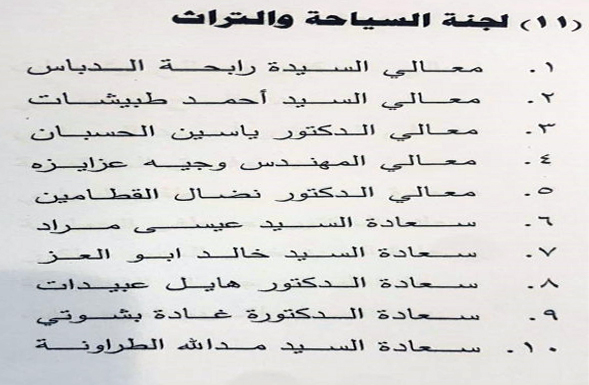 (١١) لجنة السياحة والتراث
١. معالي السيدة رابحة الدباس
٢. معالي السيد أحمد طبيشات
٣. معالي الدكتور ياسين الحسبان
٤. معالي المهندس وجيه عزايزه
٥. معالي الدكتور نضال القطامين
٦. سعادة السيد عيسى مراد
٧. سعادة السيد خالد ابو العز
٨. سعادة الدكتور هايل عبيدات
٩. سعادة الدكتورة غادة بشوتي
١٠. سعادة السيد مدالله الطراونة